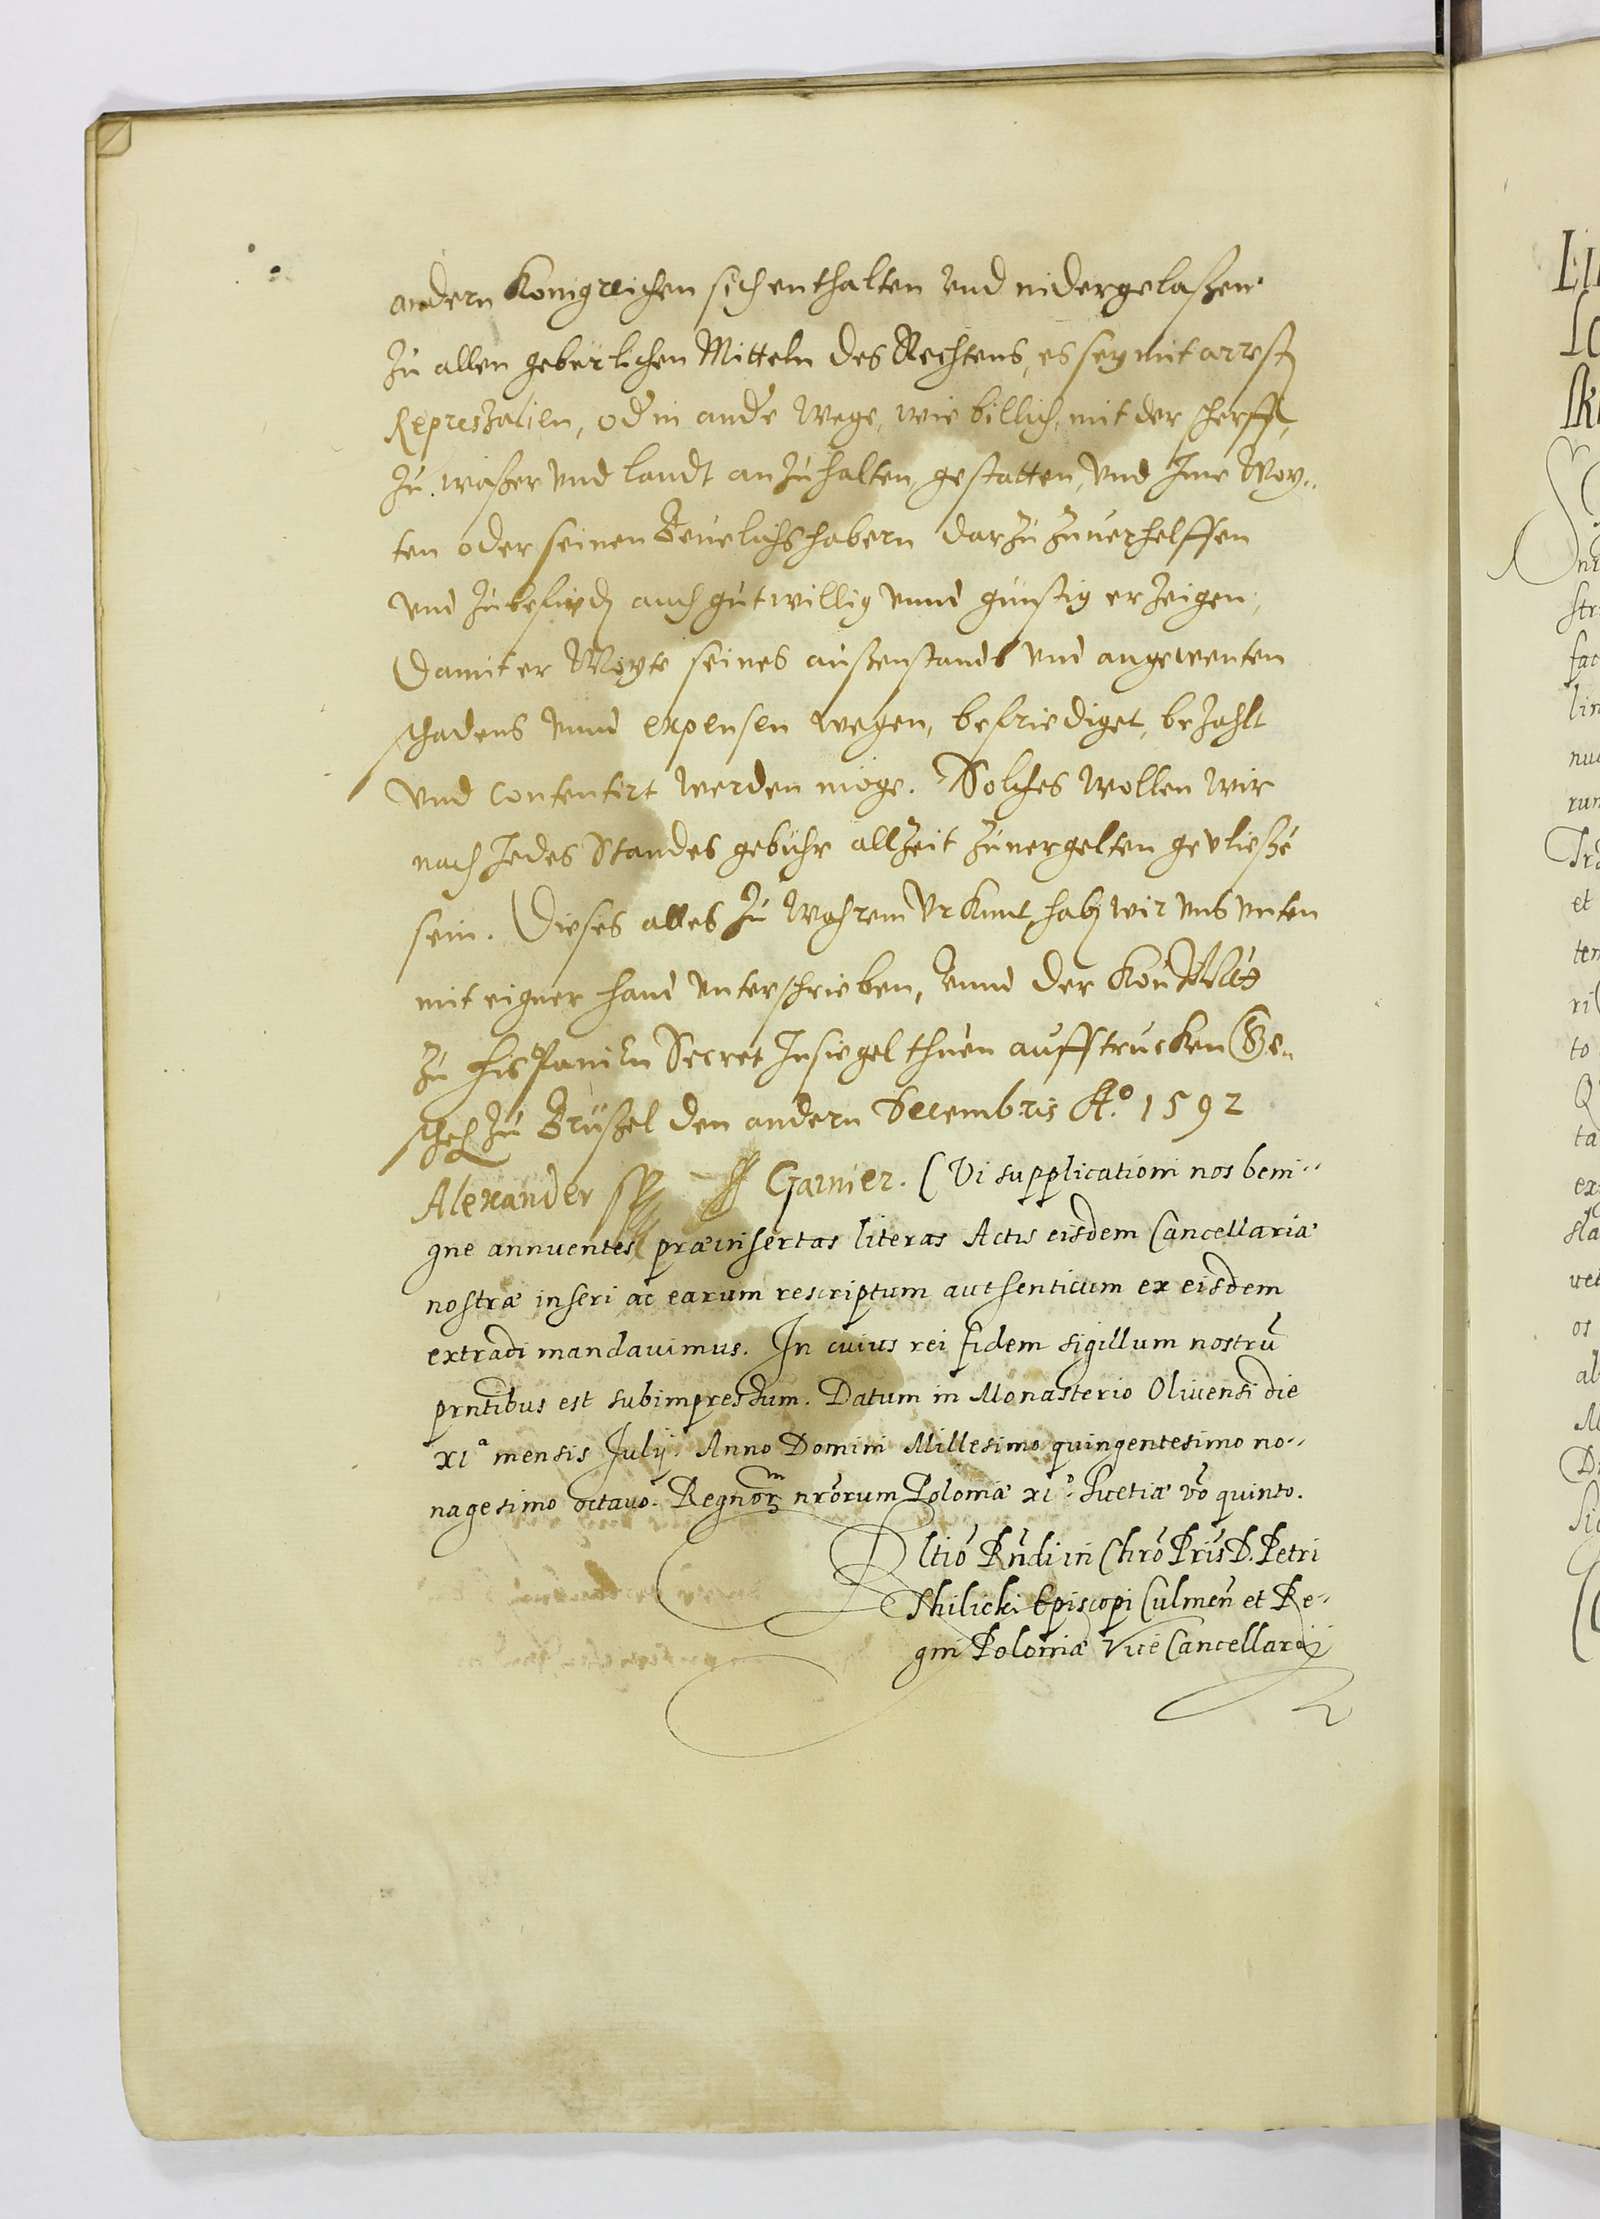 andern Konigreichen sich enthalten vnd nidergelaßen
zu allen gebürlichen Mitteln des Rechtens, es sey mit arrest
Represzalien, od in ande wege, wie billich, mit der scherffe,
zu waßer vnd landt anzuhalten, gestatten, vnd Ime Woy„
ten oder seinen Beuelichshabern darzu zuuerhelffen
vnd auch gutwillig vnnd günstig erzeigen,
Damit er Woyte seines außenstands vnd angewenten
schadens vnnd expensen wegen, befriediget, bezahlt
vnd contentirt werden möge. Solches wollen wir
nach Jedes Standes gebühr allzeit zuuergelten gevließē
sein. Dieses alles zu wahrem Urkunt, habē wir vns vnten
mit eigner hand vnterschrieben, vnnd der Kön Mtt
zu Hispanien Secret Insiegel thuen auffstrucken Ge„
scheh zu Brüßel den andern Decembris Aº. 1592
Alexander Garnier. (Vi supplicationi nos beni„
gne annuentes, præinsertas literas Actis eisdem Cancellariæ
nostræ inseri ac earum rescriptum authenticum ex eisdem
extradi mandauimus. In cuius rei fidem sigillum nostrū
prñtibus est subimpressum. Datum in Monasterio Oliuensi die
XIª mensis Julij. Anno Domini Millesimo quingentesimo no„
nagesimo octauo. Regnor̄ nrōrum Poloniæ XIº. Suetiæ vō quinto.
Rltiō Rñdi in Chrō Prīs D. Petri
Thilicki Episcopi Culmeñ et Re„
gni Poloniæ ViceCancellarij